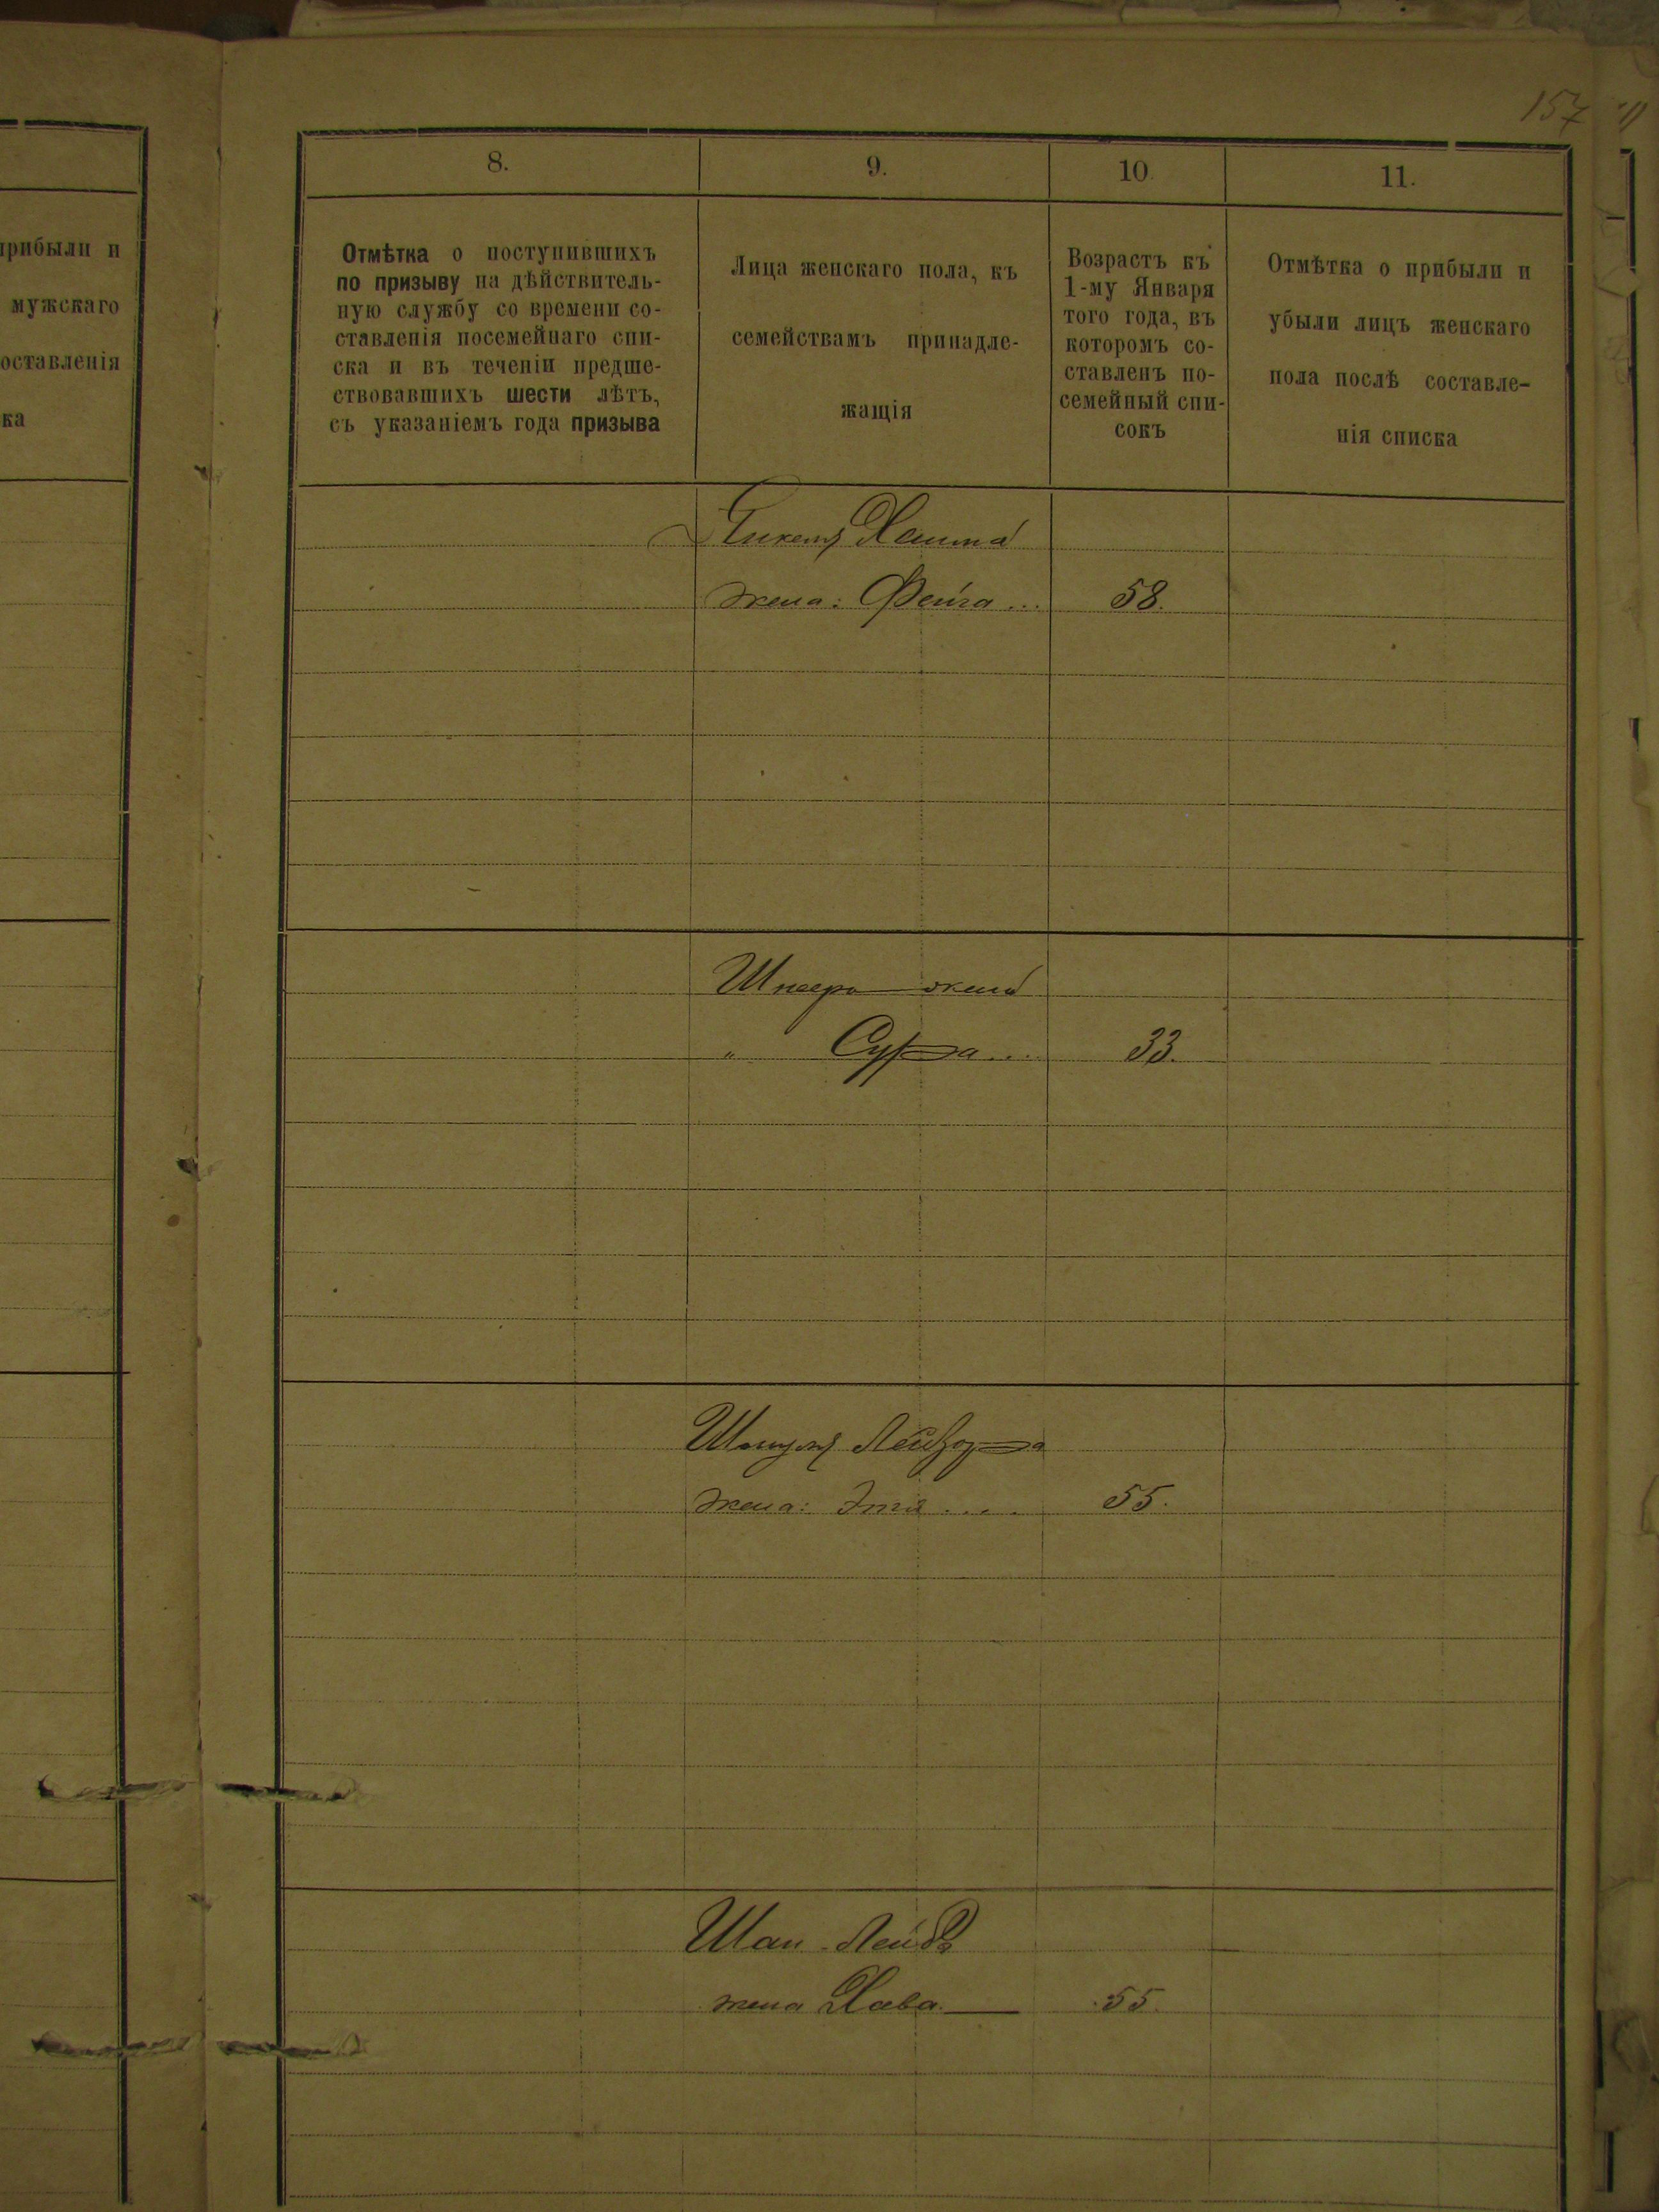 157
8.
9.
10.
11.
прибыли и
мужскаго
оставленія
ка
Отмѣтка о поступившихъ
по призыву на дѣйствитель-
ную службу со времени со-
ставленія посемейнаго спи-
ска и въ теченіи предше-
ствовавшихъ шести лѣтъ,
съ указаніемъ года призыва
Лица женскаго пола, къ
семействамъ принадле-
жащія
Возрастъ къ
1-му Января
того года, въ
которомъ со-
ставленъ по-
семейный спи-
сокъ
Отмѣтка о прибыли и
убыли лицъ женскаго
пола послѣ составле-
нія списка
жена: Фейга ... 58.
жена
" Сура ... 33.
жена: Этя .... 55.
Шан Лейба
жена Хава 55.